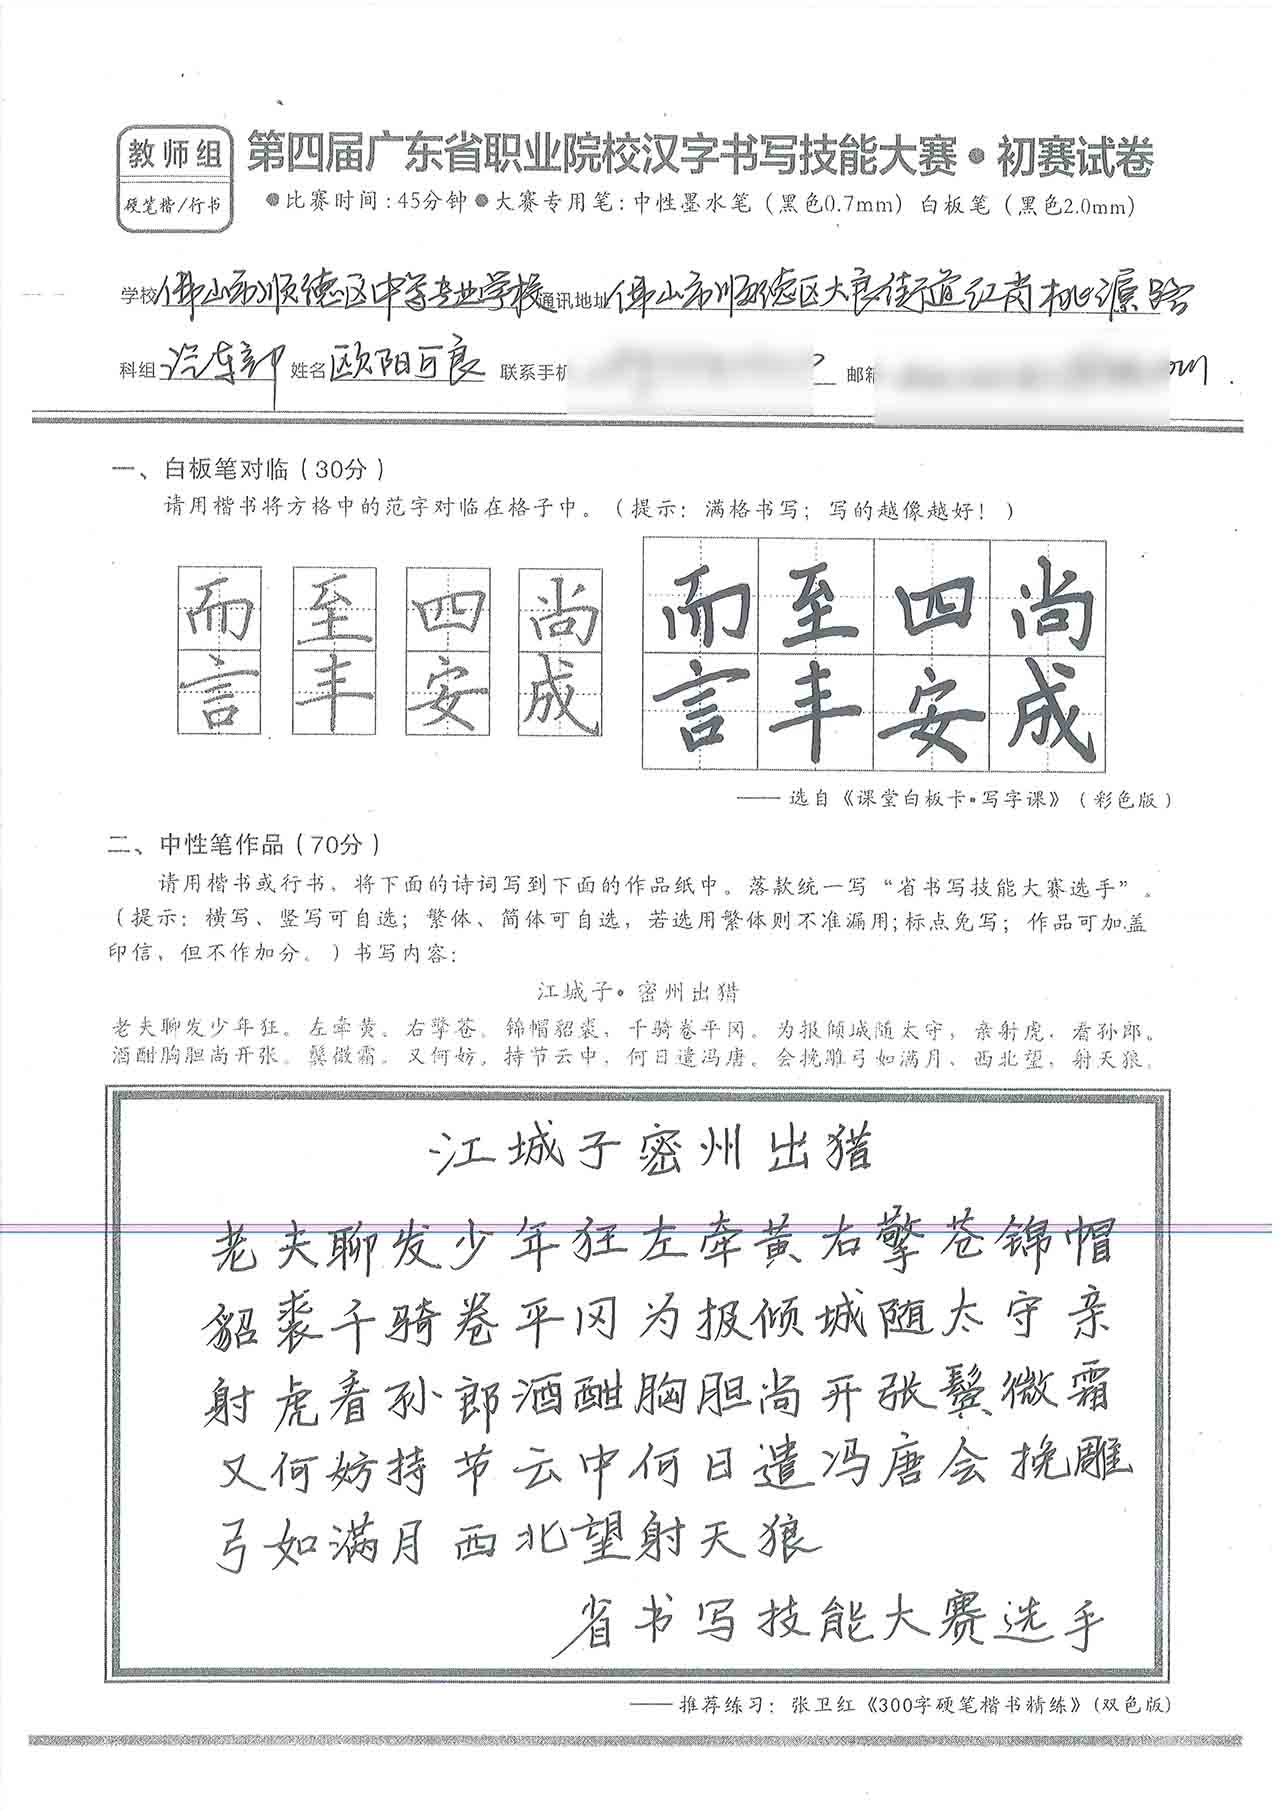 教师组
硬笔楷/行书
第四届广东省职业院校汉字书写技能大赛·初赛试卷
●比赛时间:45分钟●大赛专用笔:中性墨水笔(黑色0.7mm)白板笔(黑色2.0mm)
学校 佛山市顺德区中等专业学校 通讯地址 佛山市顺德区大良街道红岗桃源路
科组 汽车部 姓名 欧阳可良 联系手机 邮箱
一、白板笔对临(30分)
请用楷书将方格中的范字对临在格子中。(提示:满格书写;写的越像越好!)
而 至 四 尚 而 至 四 尚
言 丰 安 成 言 丰 安 成
——选自《课堂白板卡·写字课》(彩色版)
二、中性笔作品(70分)
请用楷书或行书,将下面的诗词写到下面的作品纸中。落款统一写“省书写技能大赛选手”。
(提示:横写、竖写可自选;繁体、简体可自选,若选用繁体则不准漏用;标点免写;作品可加盖
印信,但不作加分。)书写内容:
江城子·密州出猎
老夫聊发少年狂。左牵黄。右擎苍。锦帽貂裘,千骑卷平冈。为报倾城随太守,亲射虎,看孙郎。
酒酣胸胆尚开张。鬓微霜。又何妨。持节云中,何日遣冯唐。会挽雕弓如满月、西北望,射天狼。
江城子密州出猎
老夫聊发少年狂左牵黄右擎苍锦帽
貂裘千骑卷平冈为报倾城随太守亲
射虎看孙郎酒酣胸胆尚开张鬓微霜
又何妨持节云中何日遣冯唐会挽雕
弓如满月西北望射天狼
省书写技能大赛选手
——推荐练习:张卫红《300字硬笔楷书精练》(双色版)